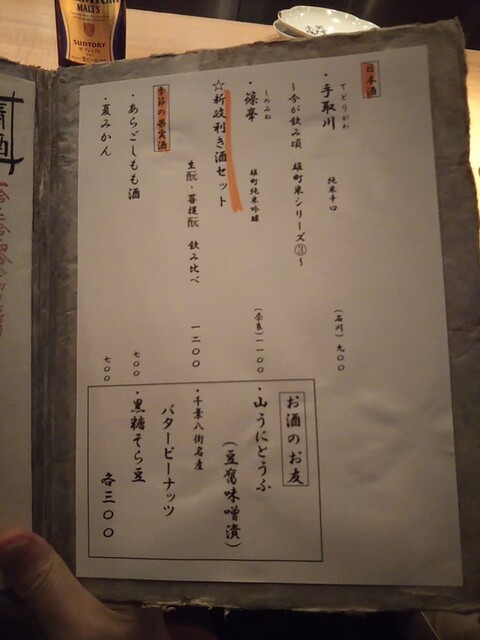 MALTS
SUNTORY
日本酒
・手取川 純米辛口 (石川) 九〇〇
てどりがわ
～今が飲み頃 雄町米シリーズ③～
・篠峯 雄町純米吟醸 (奈良) 一一〇〇
しのみね
☆新政利き酒セット
生酛・菩提酛 飲み比べ 一二〇〇
季節の果実酒
・あらごしもも酒 七〇〇
・夏みかん 七〇〇
お酒のお友
・山うにとうふ
(豆腐味噌漬)
・千葉八街名産
バターピーナッツ
・黒糖そら豆
各三〇〇
清酒